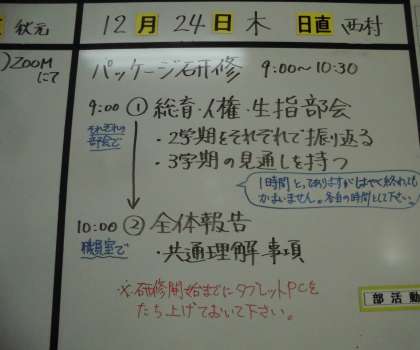 秋元
12月24日木 日直 西村
)ZOOM
にて
パッケージ研修 9:00~10:30
9:00 ① 総育・人権・生指部会
それぞれの
部会で
・2学期をそれぞれで振り返る
・3学期の見通しを持つ
1時間とってありますがはやく終わっても
かまいません。各自の時間として下さい。
10:00 ② 全体報告
職員室で
・共通理解事項
※研修開始までにタブレットPCを
たち上げておいて下さい。
部活動